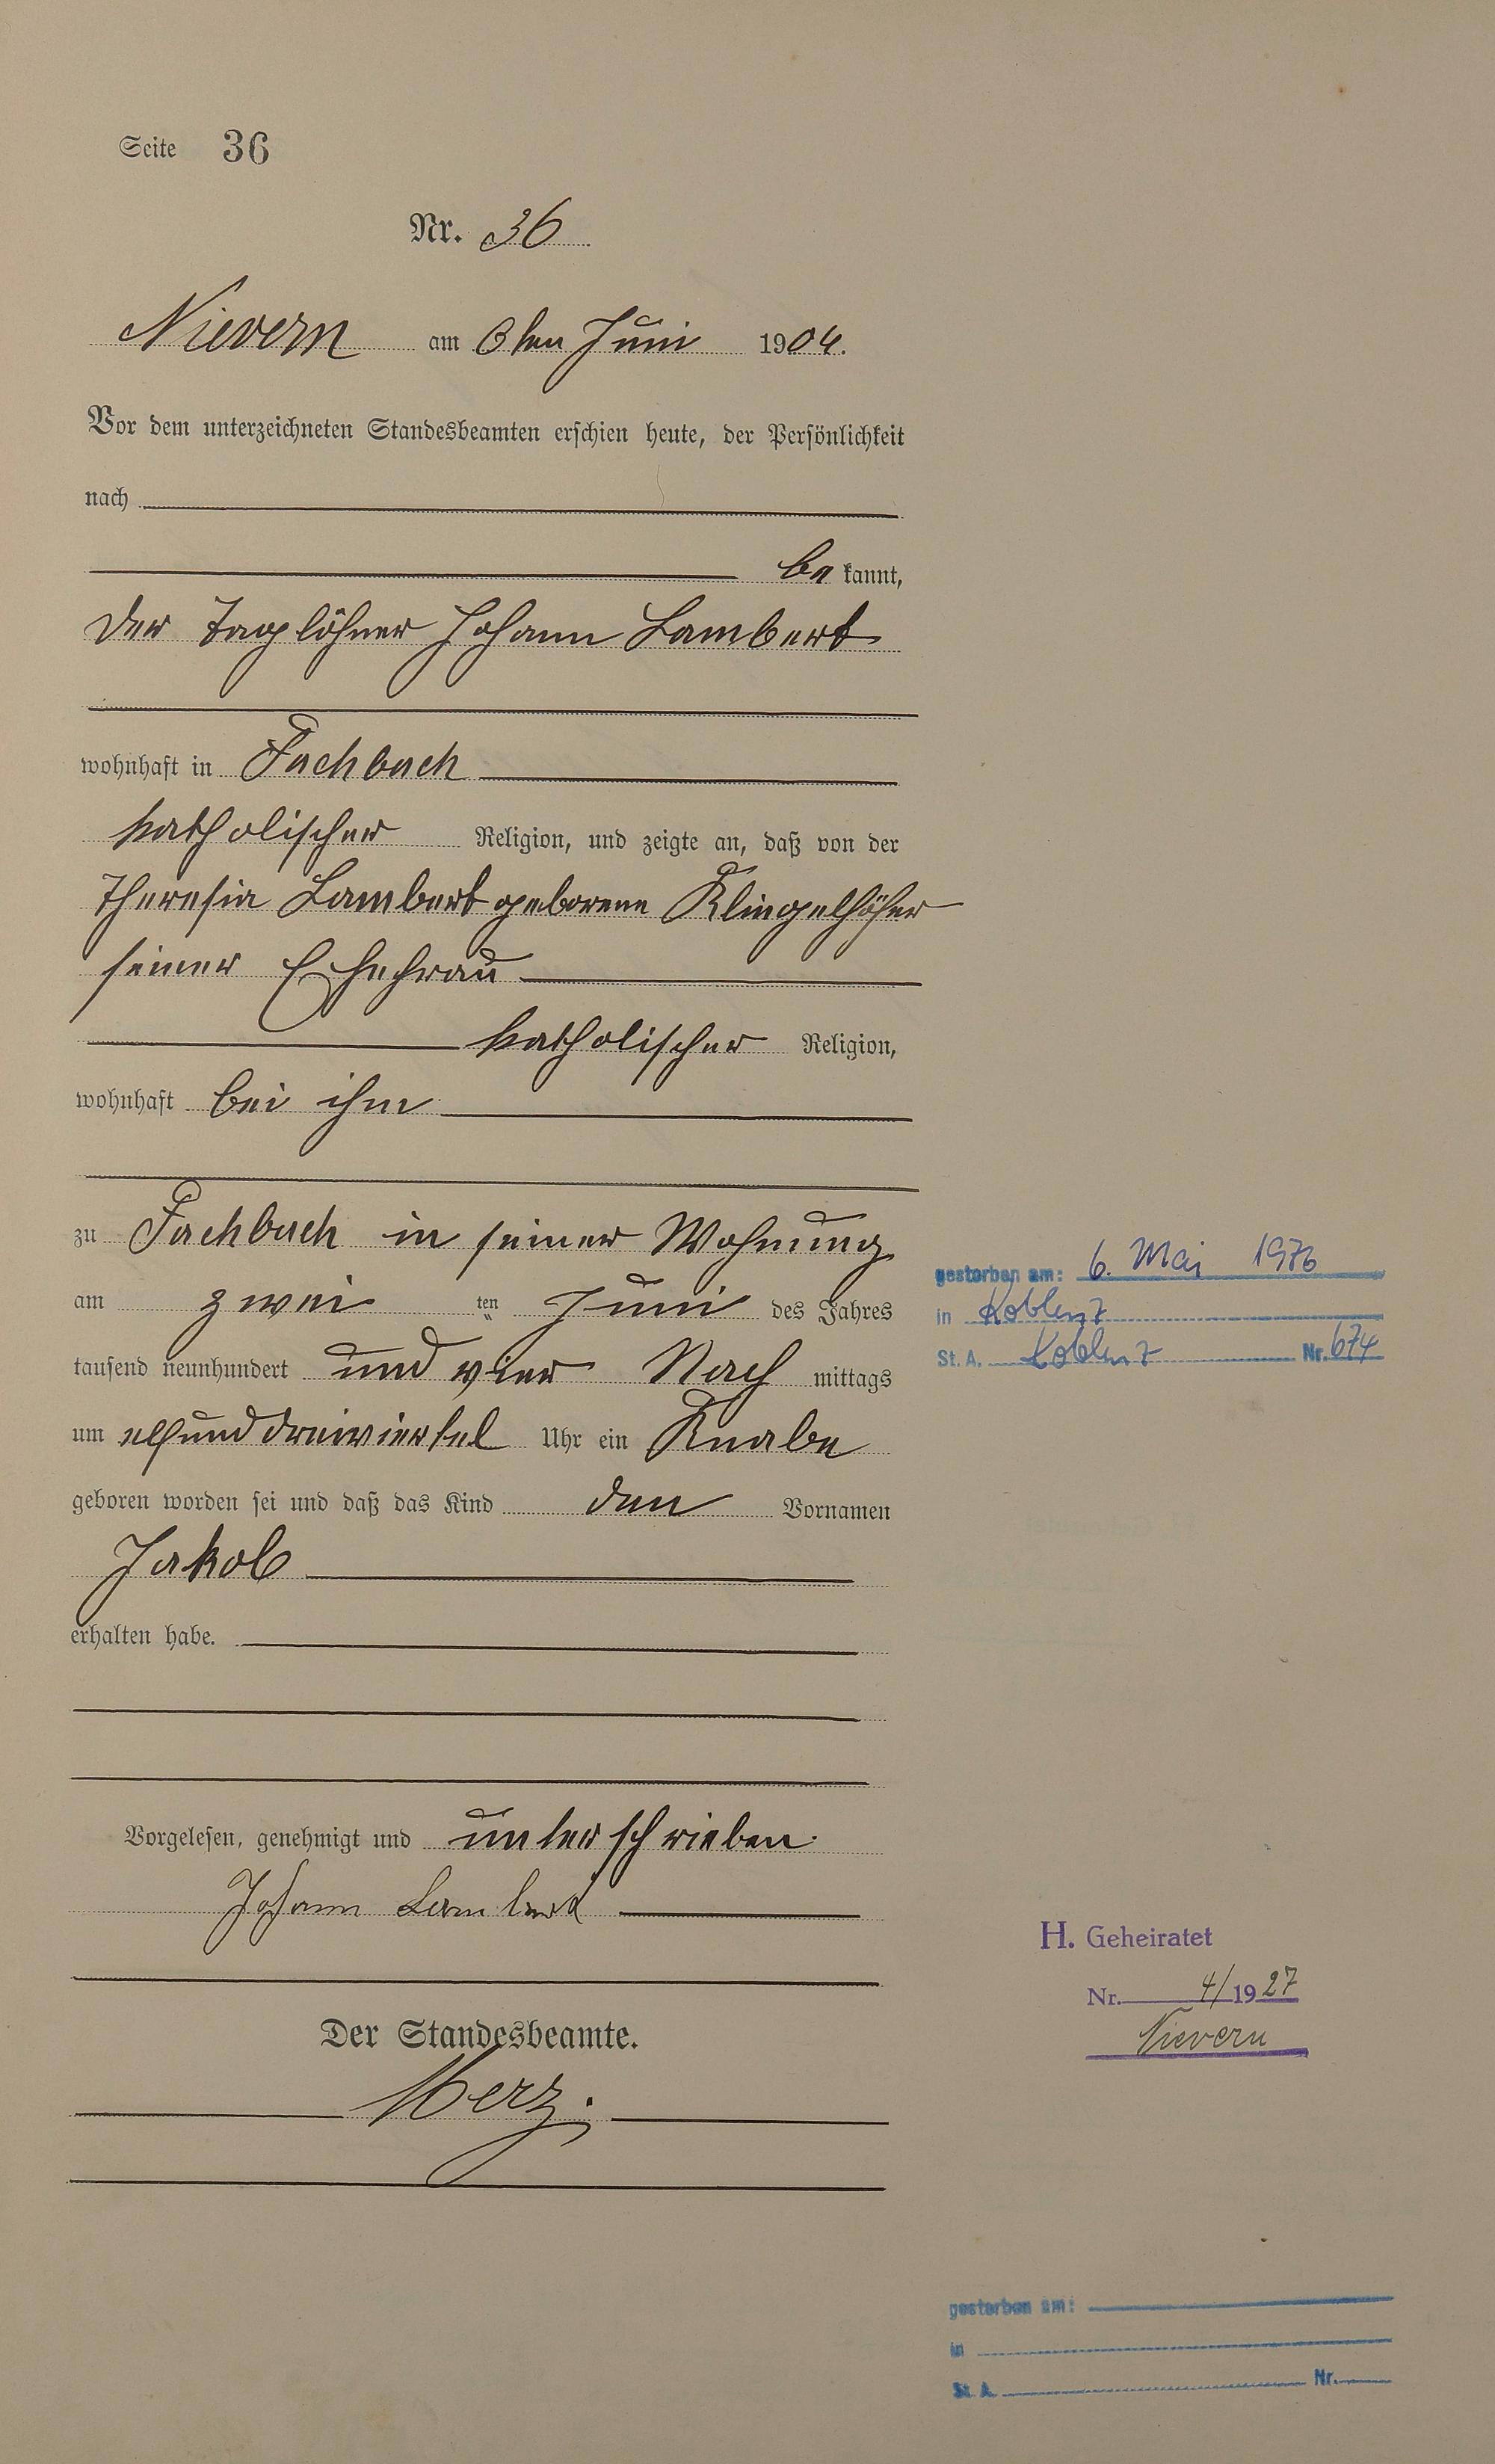 Seite 36
Nr. 36
Nievern am 6ten Juni 1904.
Vor dem unterzeichneten Standesbeamten erschien heute, der Persönlichkeit
nach
be kannt,
der Taglöhner Johann Lambert
wohnhaft in Fachbach
katholischer Religion, und zeigte an, daß von der
Theresia Lambert geborene Klingelhöfer
seiner Ehefrau
katholischer Religion,
wohnhaft bei ihm
zu Fachbach in seiner Wohnung
am zwei ten Juni des Jahres
tausend neunhundert und vier Nach mittags
um elfunddreiviertel Uhr ein Knabe
geboren worden sei und daß das Kind den Vornamen
Jakob
erhalten habe.
Vorgelesen, genehmigt und unterschrieben.
Johann Lambert
Der Standesbeamte.
Merz.
gestorben am: 6. Mai 1976
in Koblenz
St. A. Koblenz Nr. 674
H. Geheiratet
Nr. 4/1927
Nievern
gestorben am:
in
St. A. Nr.